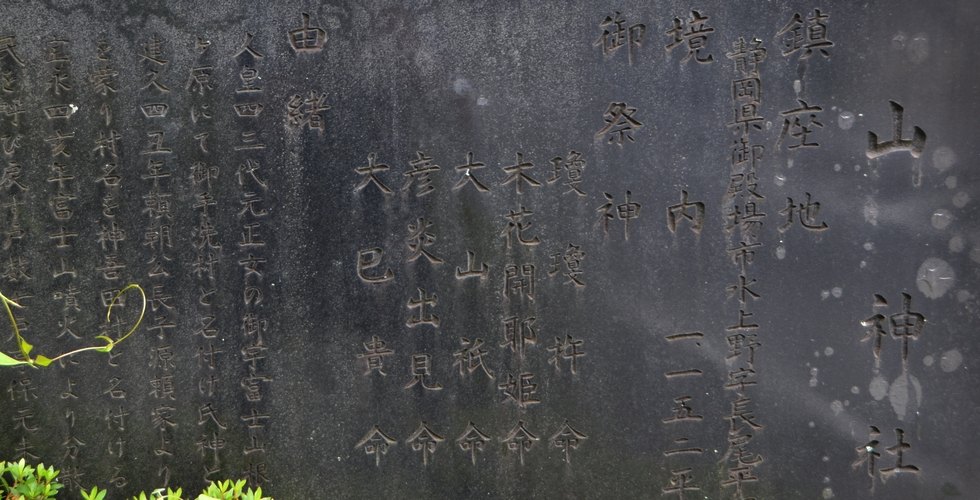 山神社
鎮座地
静岡県御殿場市水上野字長尾平
境内 一、一五二平
御祭神
瓊瓊杵命
木花開耶姫命
大山祇命
彦炎出見命
大巳貴命
由緒
人皇四二代元正女の御宇富士山根
ヶ原にて御手洗村と名付け氏神と
建久四丑年頼朝公長子源頼家より
を蒙り村名を神吉田村と名付ける
宝永四亥年富士山噴火により分散
民を呼び戻す戸数